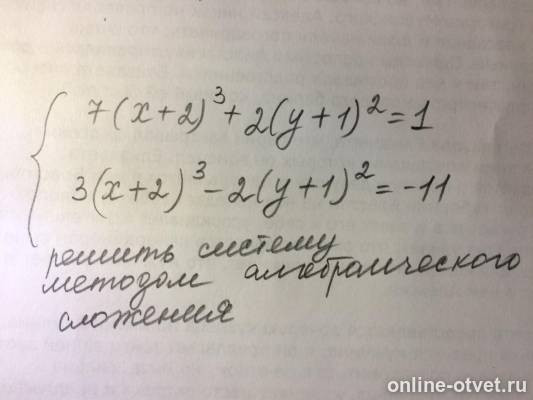 7(x+2)³+2(y+1)²=1
3(x+2)³-2(y+1)²=-11
решить систему
методом алгебраического
сложения
online-otvet.ru